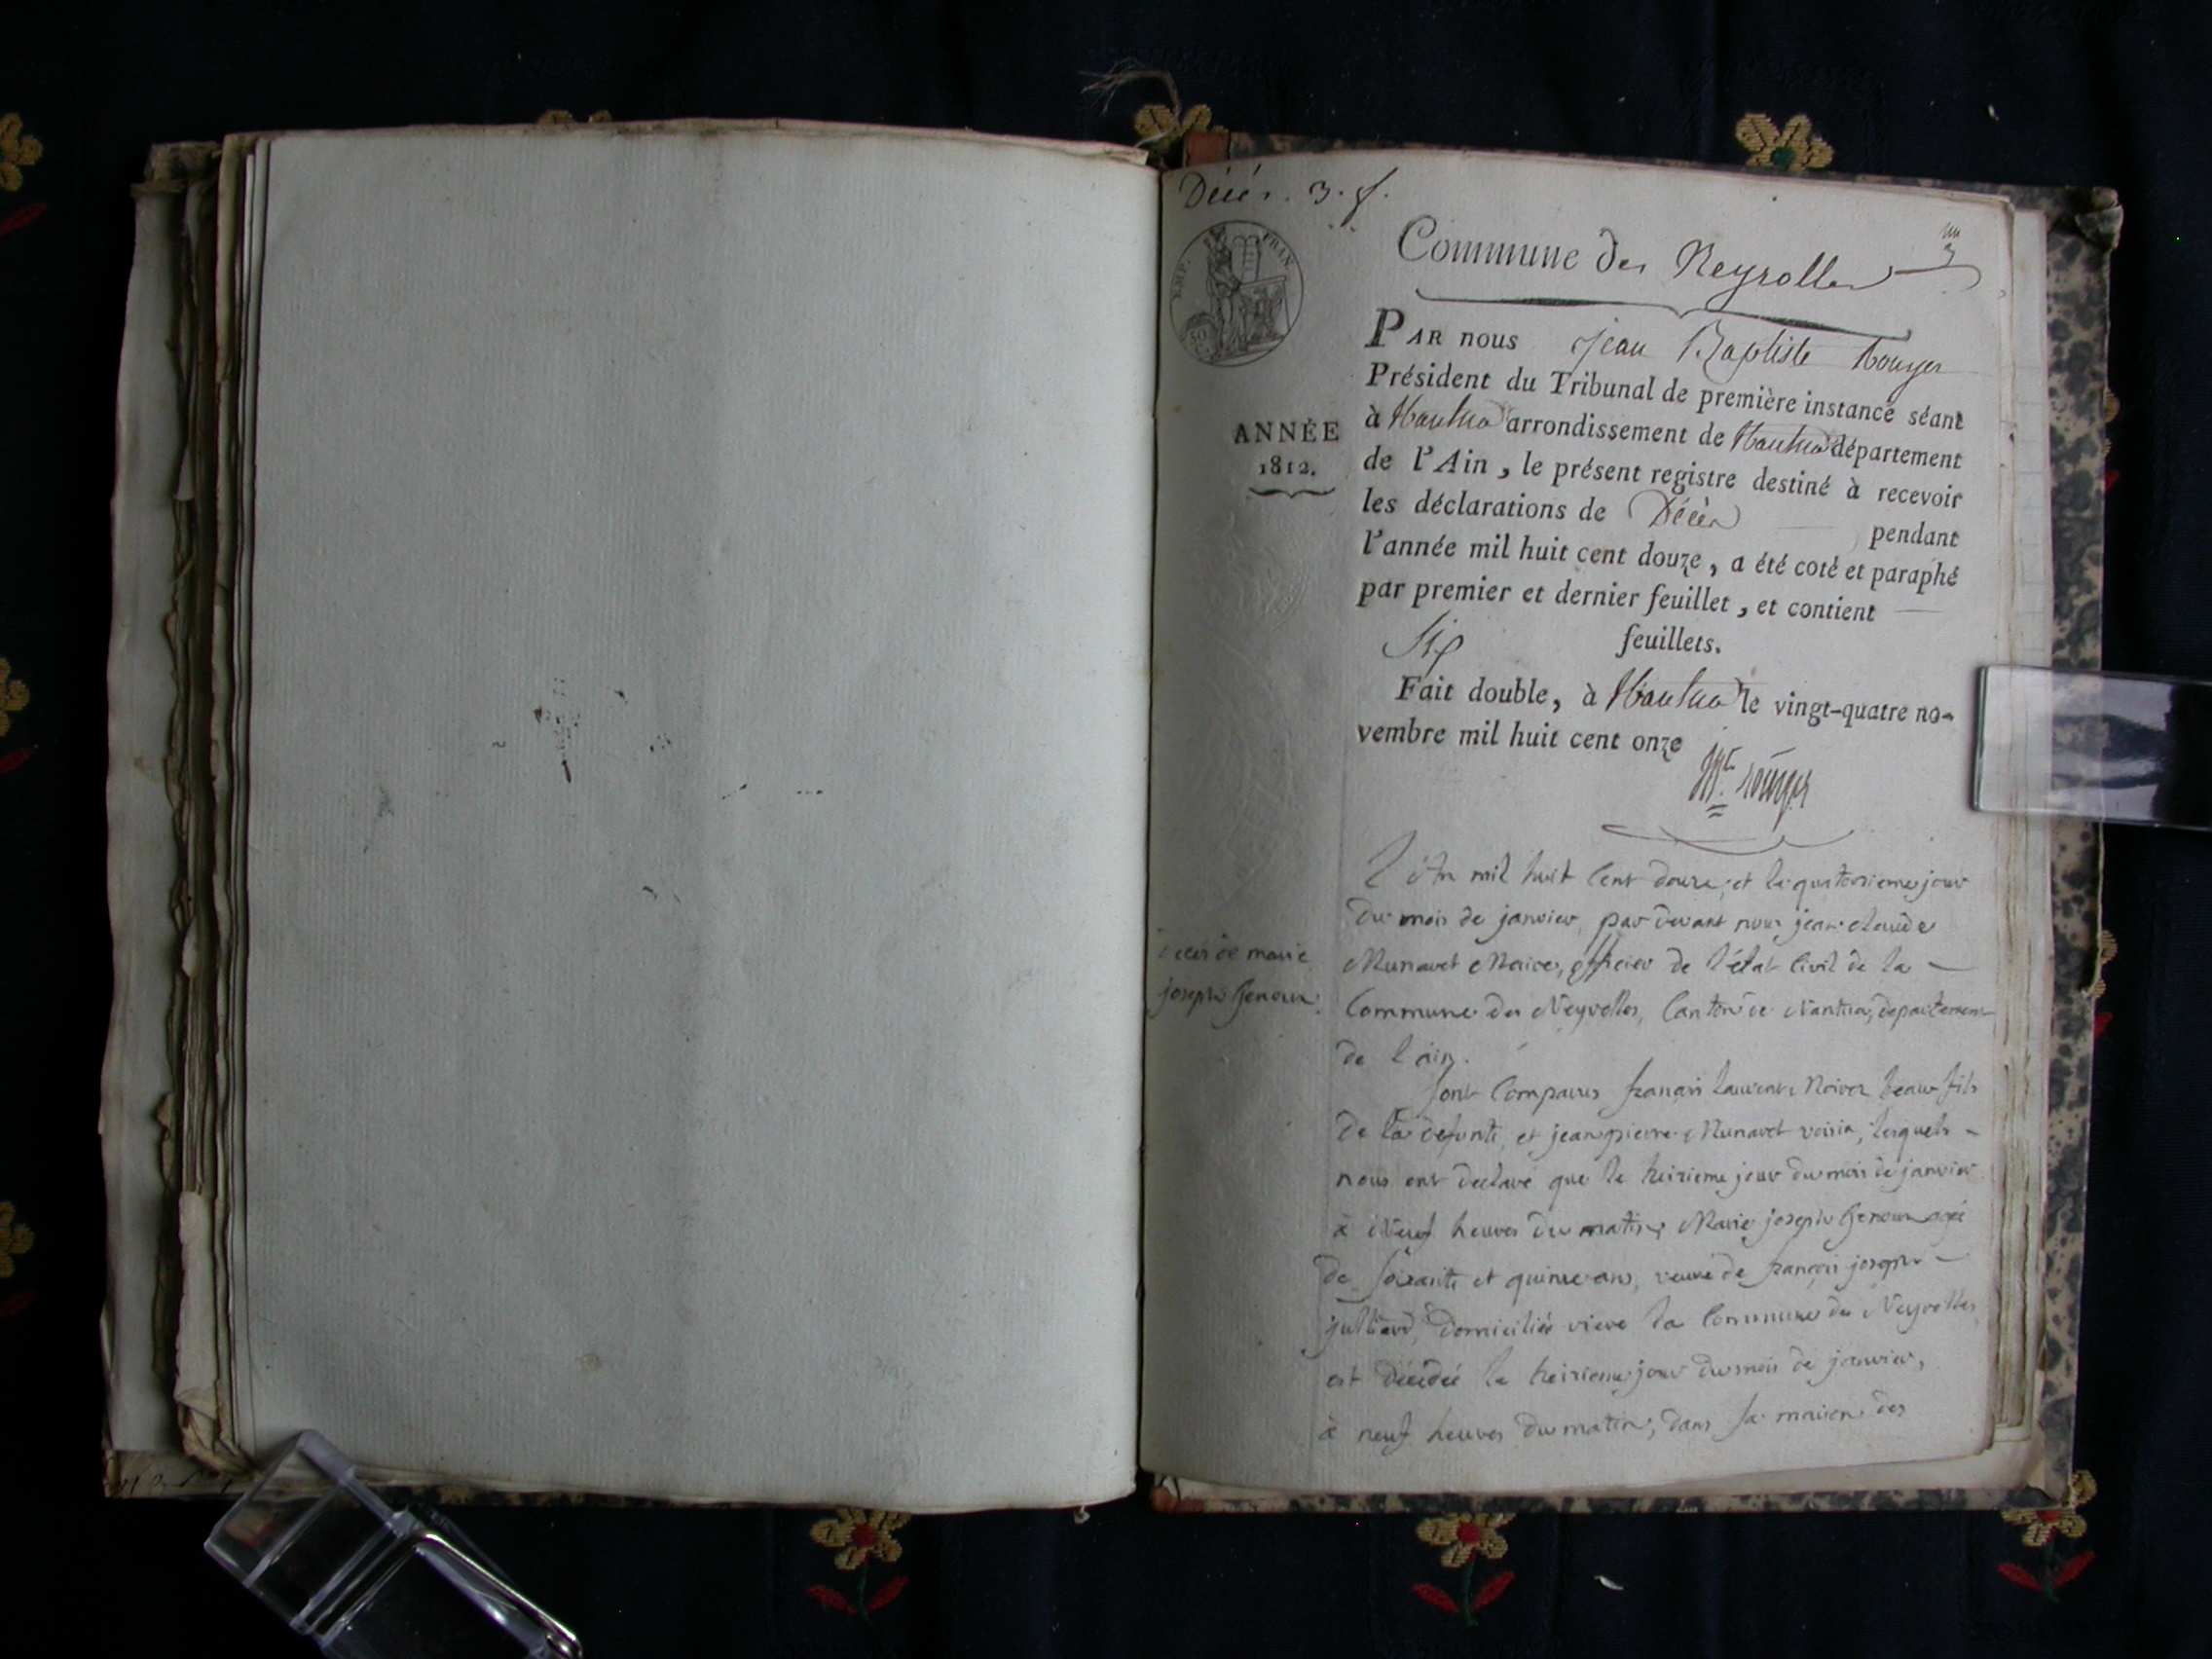 Décès. 3. f.
EMP. FRAN.
50
Commune des Neyrolles
PAR nous Jean Baptiste Rouyer
Président du Tribunal de première instance séant
à Nantua arrondissement de Nantua département
de l'Ain, le présent registre destiné à recevoir
les déclarations de Décès pendant
l'année mil huit cent douze, a été coté et paraphé
par premier et dernier feuillet, et contient
Six feuillets.
Fait double, à Nantua le vingt-quatre no-
vembre mil huit cent onze
ANNÉE
1812.
L'An mil huit Cent douze, et le quatorzieme jour
du mois de janvier, par devant nous jean claude
Munavet Maire, officier de l'état Civil de la
Commune des Neyrolles, Canton de Nantua, département
de l'ain.
Sont Comparus françois laurent Noiver beau fils
de la defunte, et jean pierre Munavet voisin, lesquels
nous ont declaré que le treizieme jour du mois de janvier
à Neuf heures du matin, Marie joseph Genoux agée
de soixante et quinze ans, veuve de françois joseph
julliard, domiciliée viere la Commune des Neyrolles,
est décédée le treizieme jour du mois de janvier,
à neuf heures du matin, dans sa maison des
décès de marie
joseph Genoux